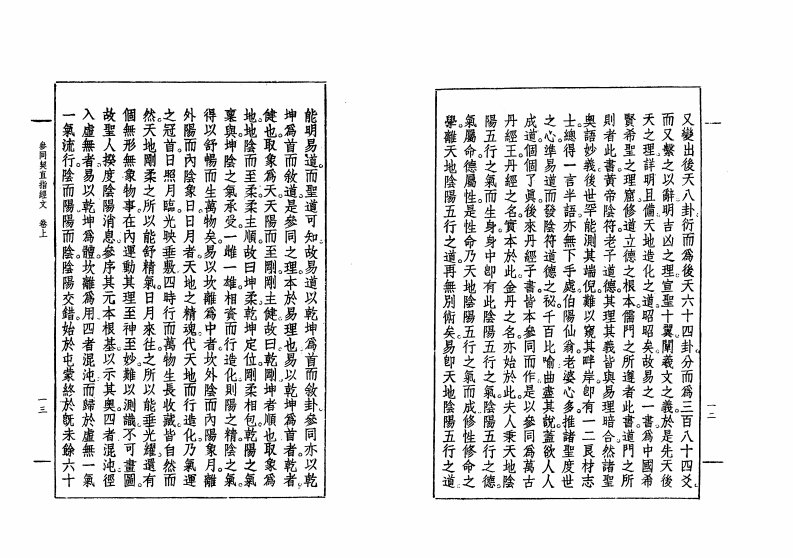 又變出後天八卦衍而爲後天六十四卦分而爲三百八十四爻。
而又繫之以辭明吉凶之理宣聖十翼闡羲文之義於是先天後
天之理詳明且備天地造化之道昭昭矣故易之一書爲中國希
賢希聖之理窟修道立德之根本儒門之所遵者此書道門之所
則者此書黃帝陰符老子道德其理其義皆與易理暗合然諸聖
奧語妙義後世罕能測其端倪難以窺其畔岸卽有一二良材志
士總得一言半語亦無下手處伯陽仙翁老婆心多推諸聖度世
之心準易道而發陰符道德之秘千百比喻曲盡其說蓋欲人人
成道個個了眞後來丹經子書皆本參同而作是以參同爲萬古
丹經王丹經之名實本於此金丹之名亦始於此夫人秉天地陰
陽五行之氣而生身身中卽有此陰陽五行之氣陰陽五行之德。
氣屬命德屬性是性命乃天地陰陽五行之氣而成修性修命之
學離天地陰陽五行之道再無別術矣易卽天地陰陽五行之道
一二
能明易道而聖道可知故易道以乾坤爲首而敘卦參同亦以乾
坤爲首而敘道是參同之理本於易理也易以乾坤爲首者乾者
健也取象爲天天陽而至剛剛主健故曰乾剛坤者順也取象爲
地地陰而至柔柔主順故曰坤柔乾坤定位剛柔相包乾陽之氣
襄與坤陰之氣承受一雌一雄相資而行造化則陽之精陰之氣
得以舒暢而生萬物矣易以坎離爲中者坎外陰而內陽象月離
外陽而內陰象日日月者天地之精魂代天地而行造化乃氣運
之冠首日照月臨光映垂敷四時行而萬物生長收藏皆自然而
然天地剛柔之所以能舒精氣日月來往之所以能垂光耀還有
個無形無象物事在內運動其理至神至妙難以測識不可畫圖
故聖人揆度陰陽消息參序其元本根基以示其奧四者混沌徑
入虛無者易以乾坤爲體坎離爲用四者混沌而歸於虛無一氣
一氣流行陰而陽陽而陰陰陽交錯始於屯蒙終於旣未餘六十
參同契直指經文　卷上
一三